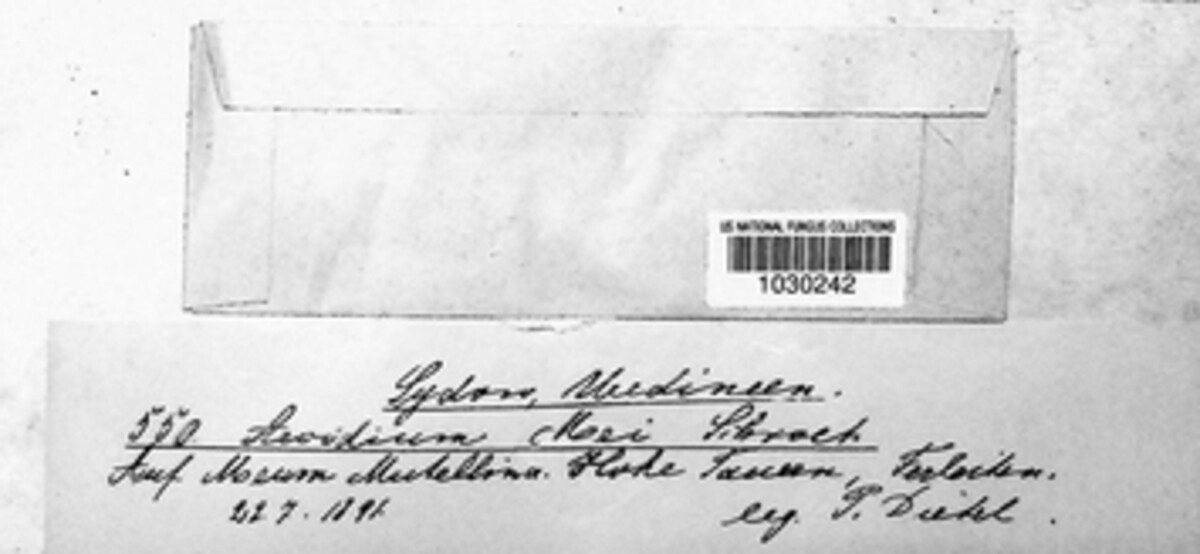 US NATIONAL FUNGUS COLLECTIONS
1030242
Sydow, Uredineen.
550 Aecidium Mei Schroet.
Auf Meum Mutellina. Hohe Tauern, Ferleiten.
22 7. 1891.
leg. P. Dietel.